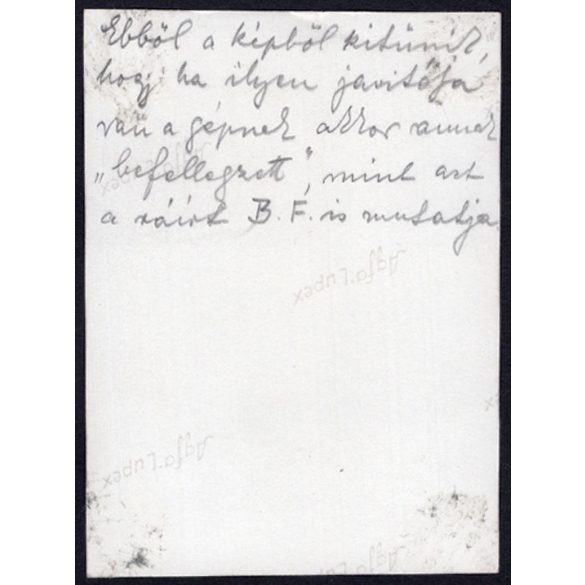 Ebből a képből kitűnik,
hogy ha ilyen javitója
van a gépnek akkor annak
„befellegzett”, mint azt
a ráirt B. F. is mutatja
Agfa Lupex
Agfa Lupex
Agfa Lupex
Agfa Lupex